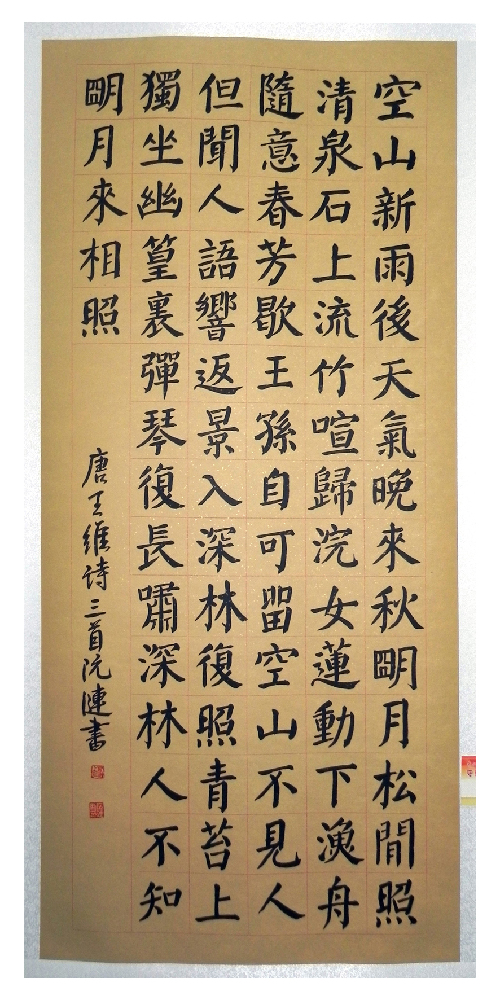 空山新雨後天氣晚來秋朙月松閒照
清泉石上流竹喧歸浣女蓮動下漁舟
隨意春芳歇王孫自可留空山不見人
但聞人語響返景入深林復照青苔上
獨坐幽篁裏彈琴復長嘯深林人不知
朙月來相照
唐王維诗三首阮漣書